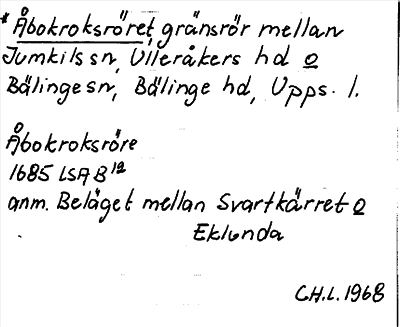 * Åbokroksröret gränsrör mellan
Jumkils sn, Ulleråkers hd o
Bälinge sn, Bälinge hd, Upps. l.
Åbokroksröre
1685 LSA B 12
anm. Beläget mellan Svartkärret o
Eklunda
C.H.L. 1968